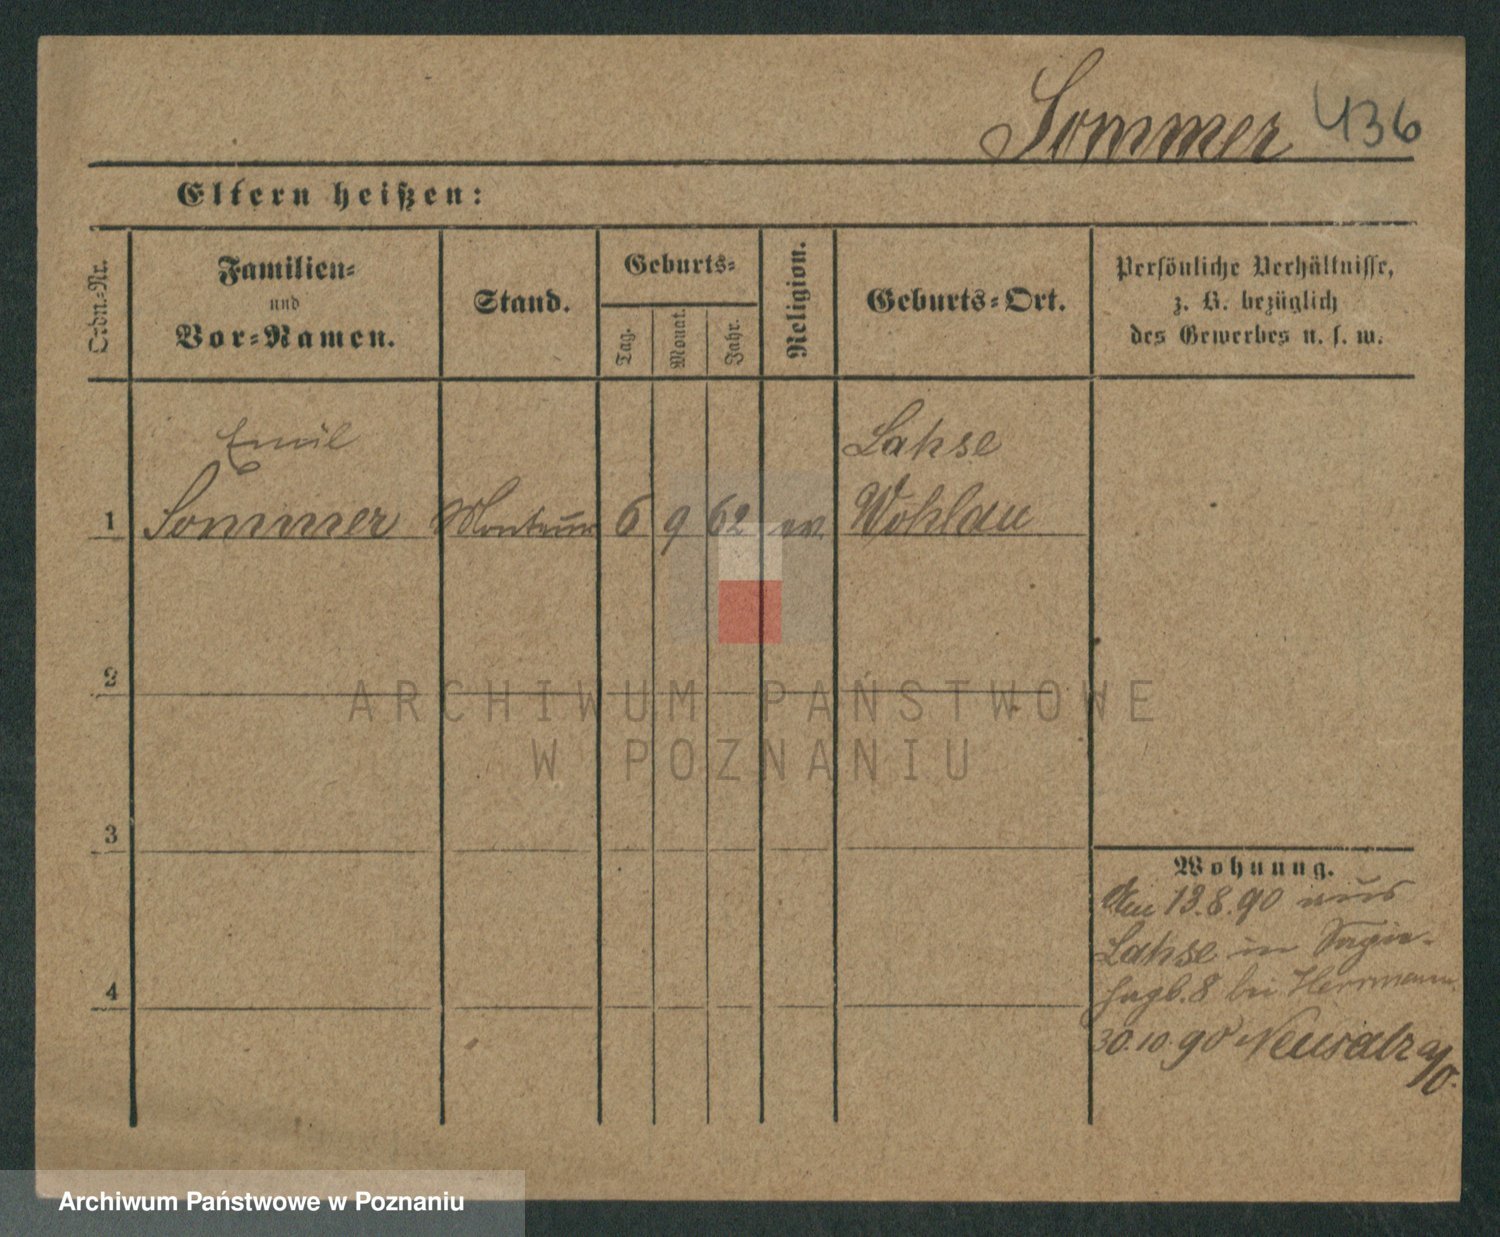 Sommer 436
Eltern heißen:
Ordn.=Nr.
Familien=
und
Vor=Namen.
Stand.
Geburts=
Tag.
Monat.
Jahr.
Religion.
Geburts=Ort.
Persönliche Verhältnisse,
z. B. bezüglich
des Gewerbes u. s. w.
Emil
Lahse
1 Sommer Monteur 6 9 62 ev. Wohlau
2
ARCHIWUM PAŃSTWOWE
W POZNANIU
3
Wohnung.
den 13.8.90 aus
Lahse in
8 bei Herrmann.
4
30.10.90 Neusalz a/O.
Archiwum Państwowe w Poznaniu